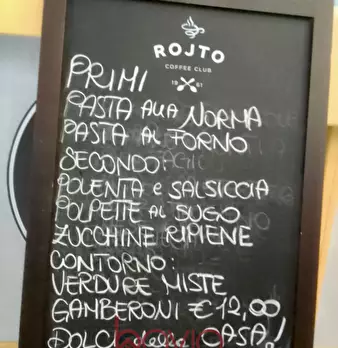 ROJTO
COFFEE CLUB
1961
PRIMI
PASTA ALLA NORMA
PASTA AL FORNO
SECONDO:
POLENTA e SALSICCIA
POLPETTE AL SUGO
ZUCCHINE RIPIENE
CONTORNO:
VERDURE MISTE
GAMBERONI €12,00
DOLCI della CASA!